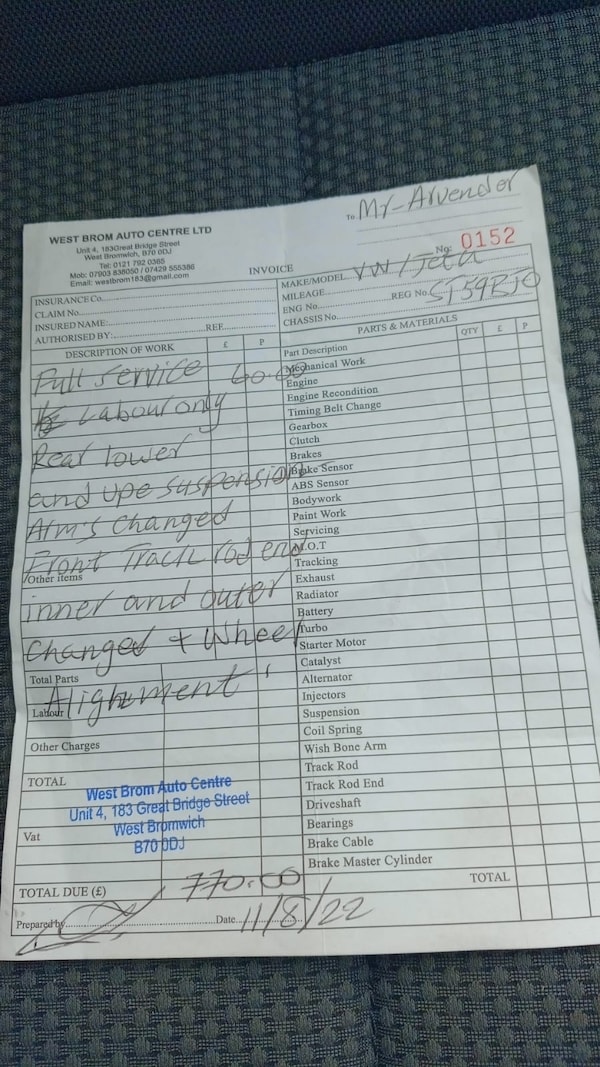 WEST BROM AUTO CENTRE LTD
Unit 4, 183Great Bridge Street
West Bromwich, B70 0DJ
Tel: 0121 792 0365
Mob: 07903 838050 / 07429 555386
Email: westbrom183@gmail.com
INVOICE
To Mr-Arvender
No: 0152
INSURANCE Co.
CLAIM No.
INSURED NAME:
AUTHORISED BY: REF.
MAKE/MODEL VW / Jetta
MILEAGE
ENG No. REG No. ST59BJO
CHASSIS No.
DESCRIPTION OF WORK £ P
Full service 60.00
Labour only
Rear lower
and upe suspension
Arm's changed
Front Track rod end
Other items
inner and outer
changed + Wheel
Total Parts
Alighnment
Labour
Other Charges
TOTAL
West Brom Auto Centre
Unit 4, 183 Great Bridge Street
West Bromwich
B70 0DJ
Vat
TOTAL DUE (£) 770.00
Prepared by Date 11/8/22
PARTS & MATERIALS QTY £ P
Part Description
Mechanical Work
Engine
Engine Recondition
Timing Belt Change
Gearbox
Clutch
Brakes
Brake Sensor
ABS Sensor
Bodywork
Paint Work
Servicing
M.O.T
Tracking
Exhaust
Radiator
Battery
Turbo
Starter Motor
Catalyst
Alternator
Injectors
Suspension
Coil Spring
Wish Bone Arm
Track Rod
Track Rod End
Driveshaft
Bearings
Brake Cable
Brake Master Cylinder
TOTAL